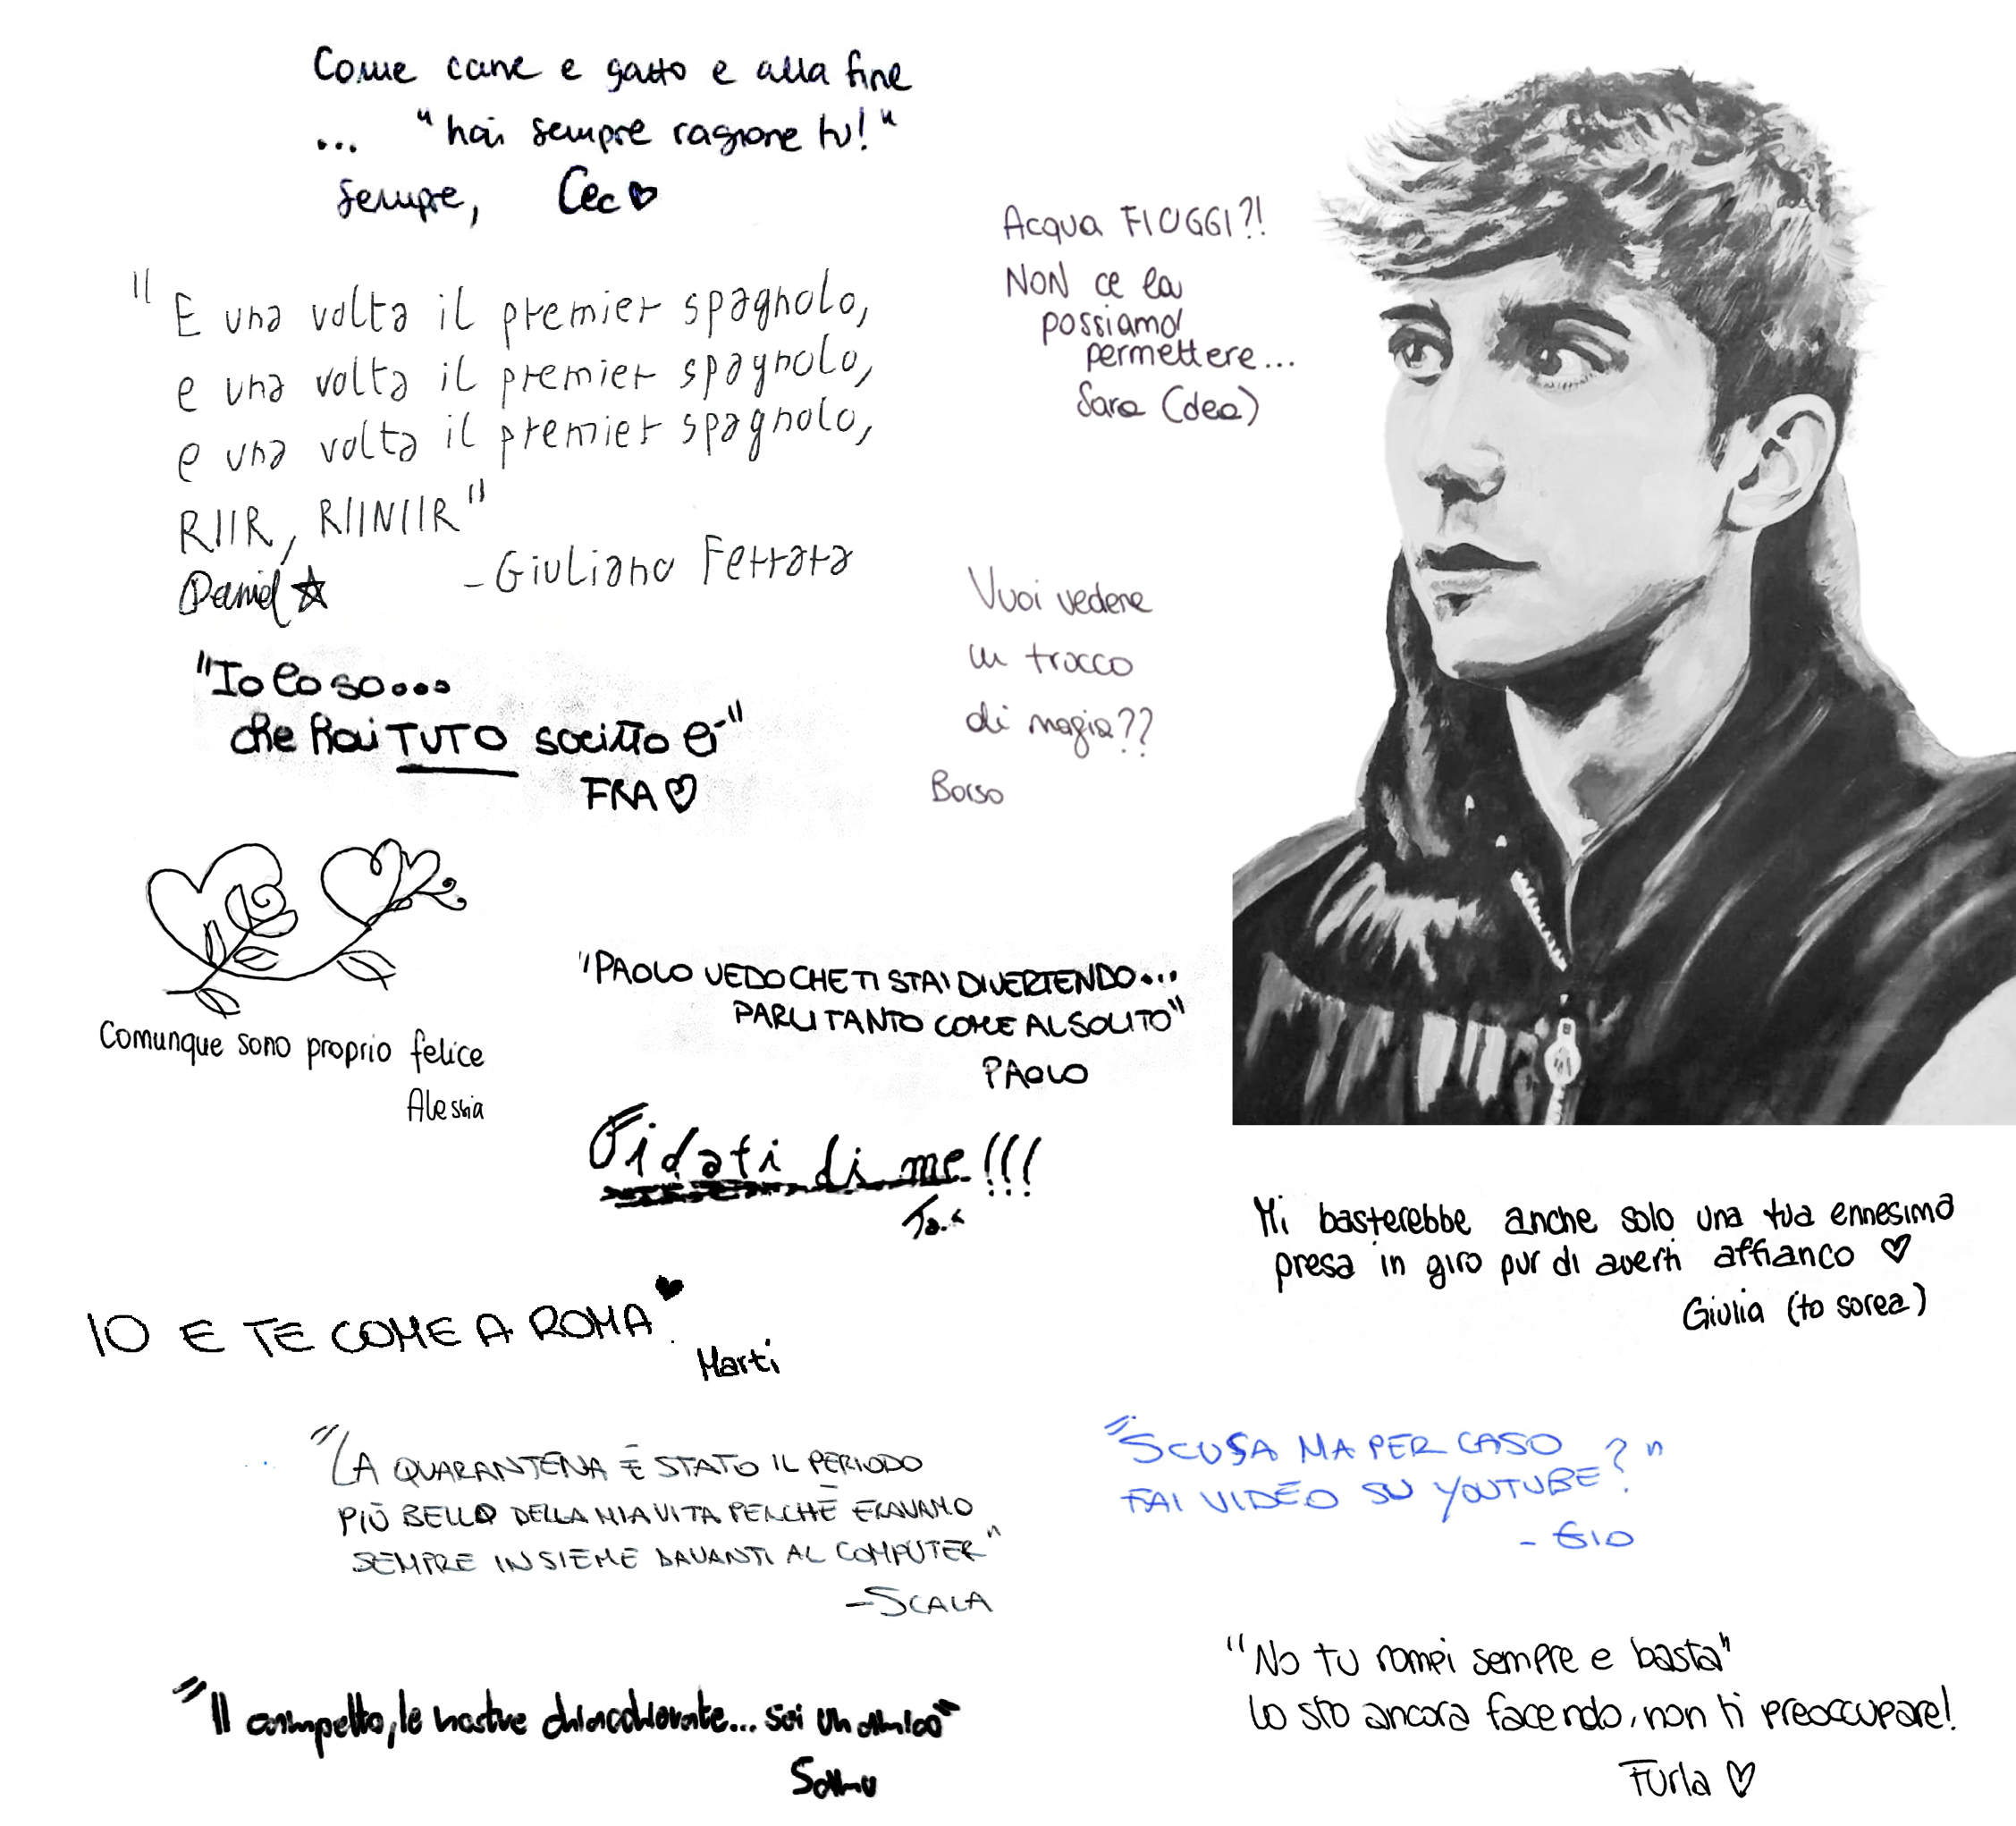 Come cane e gatto e alla fine
... "hai sempre ragione tu!"
sempre, Cec
Acqua FIUGGI?!
NON ce la
possiamo
permettere...
Sara (dea)
"E una volta il premier spagnolo,
e una volta il premier spagnolo,
e una volta il premier spagnolo,
RIIR, RIINIIR"
-Giuliano Ferrara
Daniel
Vuoi vedere
un trucco
di magia??
Borso
"Io lo so...
che hai TUTO scritto lì"
FRA
Comunque sono proprio felice
Alessia
"PAOLO VEDO CHE TI STAI DIVERTENDO...
PARLI TANTO COME AL SOLITO"
PAOLO
Fidati di me!!!
Mi basterebbe anche solo una tua ennesima
presa in giro pur di averti affianco
Giulia (to sorea)
IO E TE COME A ROMA
Marti
"LA QUARANTENA È STATO IL PERIODO
PIÙ BELLO DELLA MIA VITA PERCHÈ ERAVAMO
SEMPRE INSIEME DAVANTI AL COMPUTER"
-SCALA
"SCUSA MA PER CASO
FAI VIDEO SU YOUTUBE?"
- GIO
"No tu rompi sempre e basta"
Lo sto ancora facendo, non ti preoccupare!
Furla
"Il campetto, le nostre chiacchierate... sei un amico"